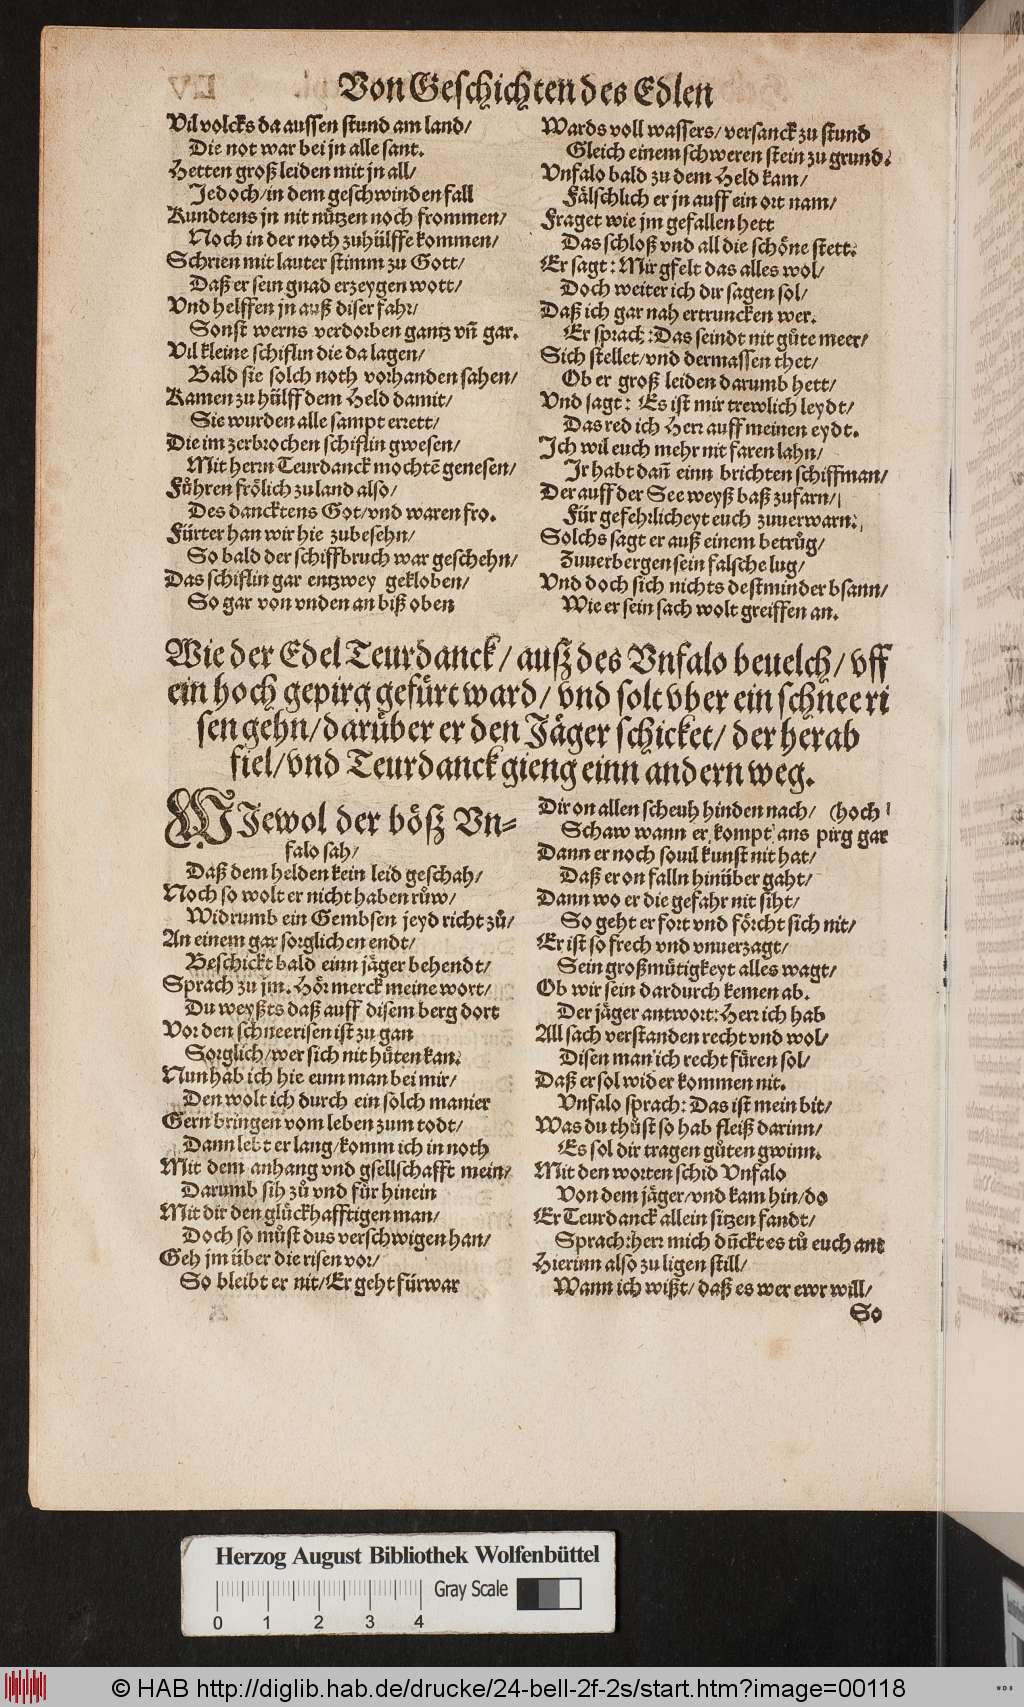 Von Geschichten des Edlen
Vil volcks da aussen stund am land/
Die not war bei jn alle sant.
Hetten groß leiden mit jn all/
Jedoch/in dem geschwinden fall
Kundtens jn nit nützen noch frommen/
Noch in der noth zuhülffe kommen/
Schrien mit lauter stimm zu Gott/
Daß er sein gnad erzeygen wott/
Vnd helffen jn auß diser fahr/
Sonst werns verdorben gantz vñ gar.
Vil kleine schiflin die da lagen/
Bald sie solch noth vorhanden sahen/
Kamen zu hülff dem Held damit/
Sie wurden alle sampt errett/
Die im zerbrochen schiflin gwesen/
Mit herrn Teurdanck mochtē genesen/
Fůhren frölich zu land also/
Des dancktens Got/vnd waren fro.
Fürter han wir hie zubesehn/
So bald der schiffbruch war geschehn/
Das schiflin gar entzwey gekloben/
So gar von vnden an biß oben
Wards voll wassers/versanck zu stund
Gleich einem schweren stein zu grund.
Vnfalo bald zu dem Held kam/
Fälschlich er jn auff ein ort nam/
Fraget wie jm gefallen hett
Das schloß vnd all die schöne stett.
Er sagt: Mir gfelt das alles wol/
Doch weiter ich dir sagen sol/
Daß ich gar nah ertruncken wer.
Er sprach: Das seindt nit gůte meer/
Sich stellet/vnd dermassen thet/
Ob er groß leiden darumb hett/
Vnd sagt: Es ist mir trewlich leydt/
Das red ich Herr auff meinen eydt.
Ich wil euch mehr nit faren lahn/
Ir habt dañ einn brichten schiffman/
Der auff der See weyß baß zufarn/
Für gefehrlicheyt euch zuuerwarn.
Solchs sagt er auß einem betrůg/
Zuuerbergen sein falsche lug/
Vnd doch sich nichts destminder bsann/
Wie er sein sach wolt greiffen an.
Wie der Edel Teurdanck/ausz des Vnfalo beuelch/vff
ein hoch gepirg gefürt ward/vnd solt vber ein schnee ri
sen gehn/darüber er den Jäger schicket/der herab
fiel/vnd Teurdanck gieng einn andern weg.
WIewol der bösz Vn-
falo sah/
Daß dem helden kein leid geschah/
Noch so wolt er nicht haben růw/
Widrumb ein Gembsen jeyd richt zů/
An einem gar sorglichen endt/
Beschickt bald einn jäger behendt/
Sprach zu jm. Hör merck meine wort/
Du weyßts daß auff disem berg dort
Vor den schneerisen ist zu gan
Sorglich/wer sich nit hüten kan.
Nun hab ich hie einn man bei mir/
Den wolt ich durch ein solch manier
Gern bringen vom leben zum todt/
Dann lebt er lang/komm ich in noth
Mit dem anhang vnd gsellschafft mein/
Darumb sih zů vnd für hinein
Mit dir den glückhafftigen man/
Doch so můst dus verschwigen han/
Geh jm über die risen vor/
So bleibt er nit/Er geht fürwar
Dir on allen scheuh hinden nach/ (hoch
Schaw wann er kompt ans pirg gar
Dann er noch souil kunst nit hat/
Daß er on falln hinüber gaht/
Dann wo er die gefahr nit siht/
So geht er fort vnd förcht sich nit/
Er ist so frech vnd vnuerzagt/
Sein großmütigkeyt alles wagt/
Ob wir sein dardurch kemen ab.
Der jäger antwort: Herr ich hab
All sach verstanden recht vnd wol/
Disen man ich recht füren sol/
Daß er sol wider kommen nit.
Vnfalo sprach: Das ist mein bit/
Was du thůst so hab fleiß darinn/
Es sol dir tragen gůten gwinn.
Mit den worten schid Vnfalo
Von dem jäger/vnd kam hin/do
Er Teurdanck allein sitzen fandt/
Sprach: herr mich důckt es tů euch ant
Hierinn also zu ligen still/
Wann ich wißt/daß es wer ewr will/
So
Herzog August Bibliothek Wolfenbüttel
Gray Scale
0 1 2 3 4
© HAB http://diglib.hab.de/drucke/24-bell-2f-2s/start.htm?image=00118